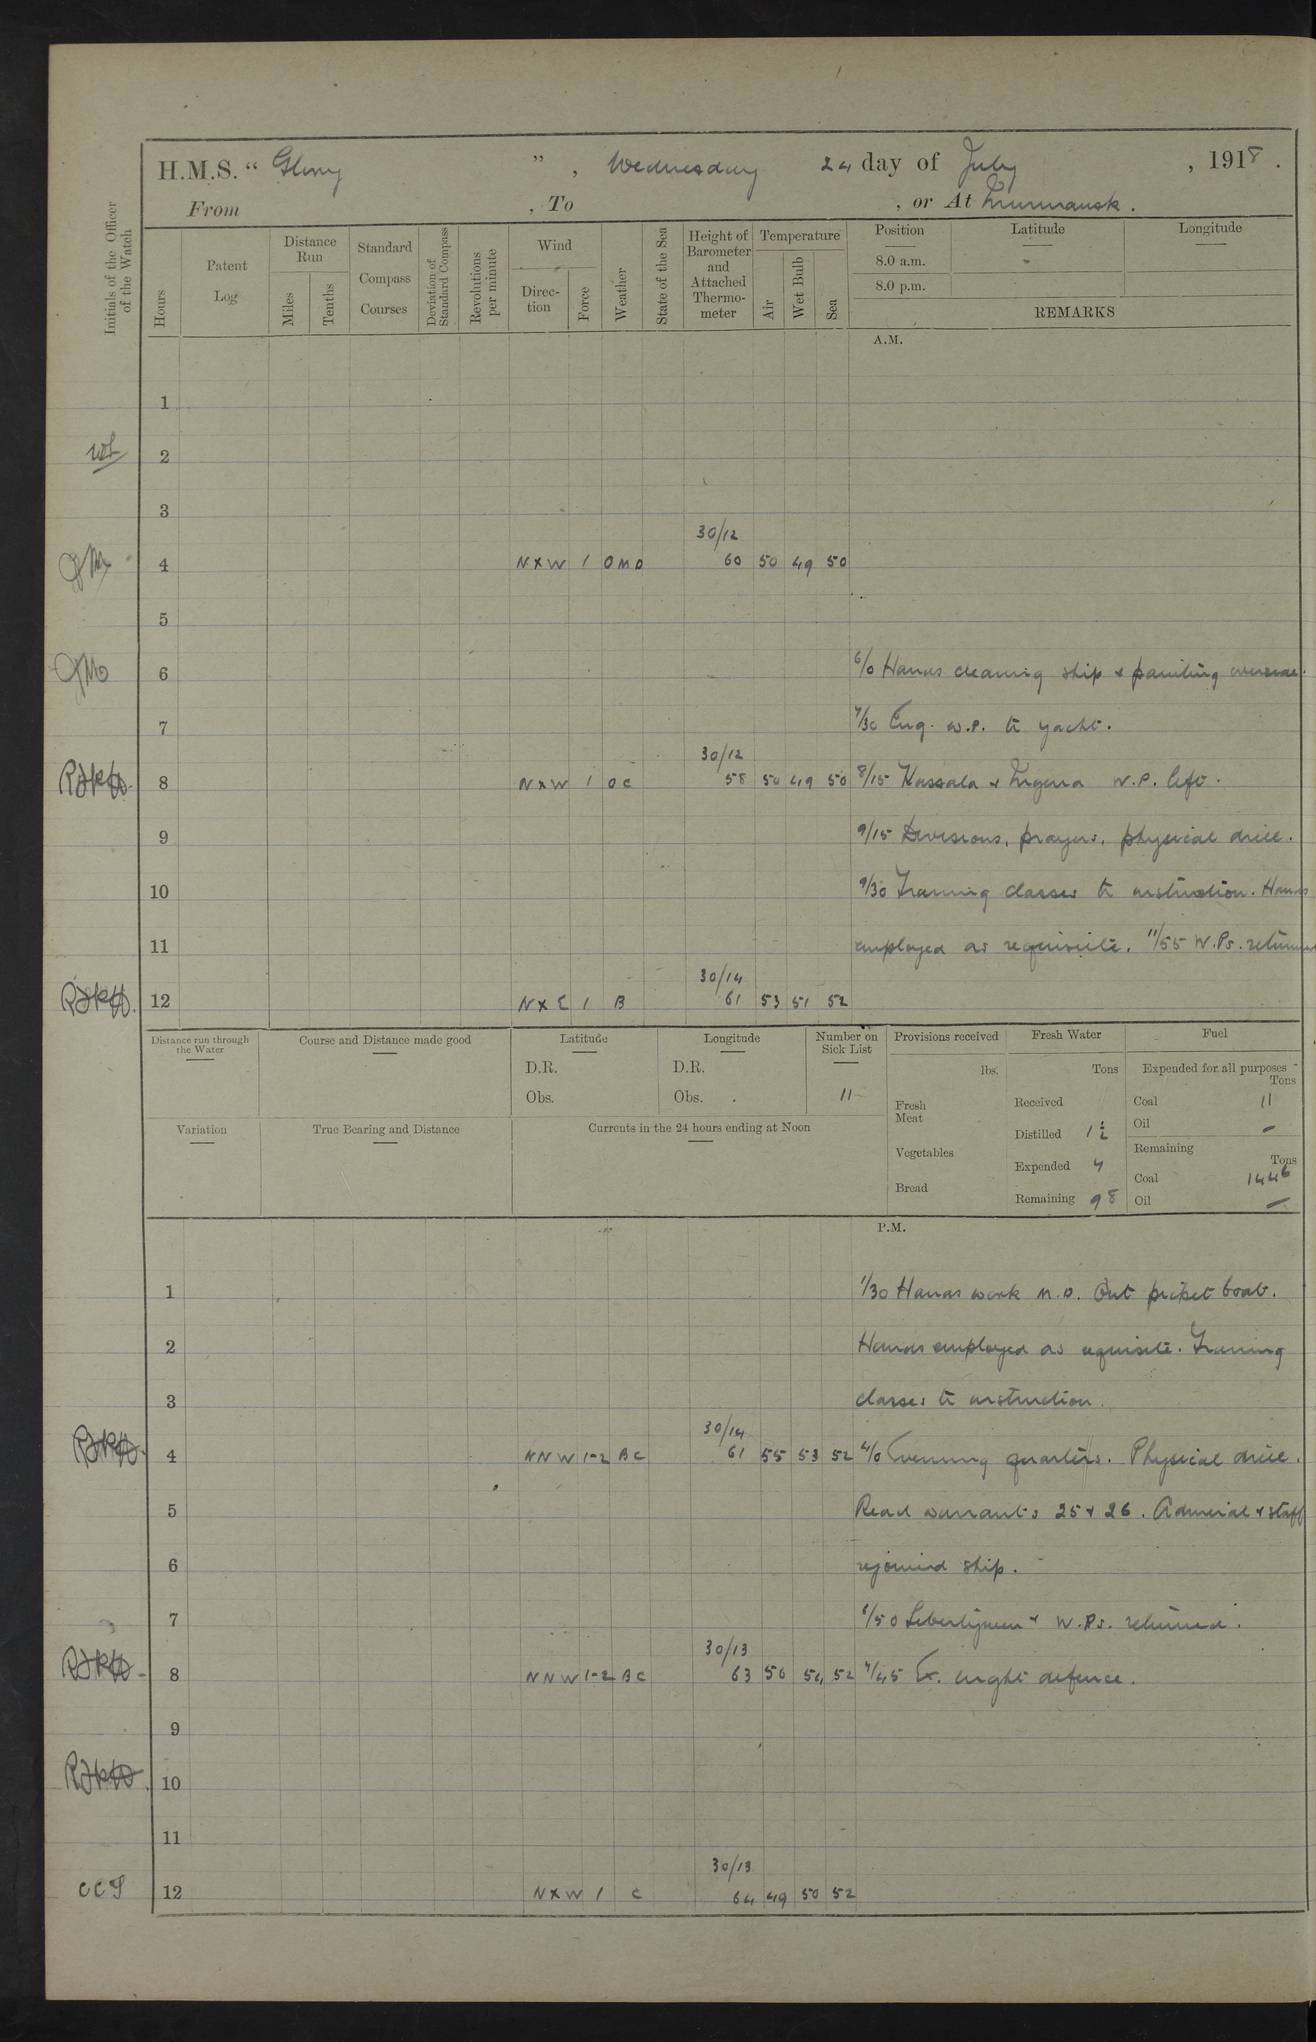 H.M.S. “ Glory ” , Wednesday 24 day of July , 1918 .
From , To , or At Murmansk .
Initials of the Officer of the Watch
Hours
Patent Log
Distance Run
Miles
Tenths
Standard Compass Courses
Deviation of Standard Compass
Revolutions per minute
Wind
Direc-tion
Force
Weather
State of the Sea
Height of Barometer and Attached Thermo-meter
Temperature
Air
Wet Bulb
Sea
Position Latitude Longitude
8.0 a.m.
8.0 p.m.
REMARKS
A.M.
1
2
3
30/12
4 N x W 1 O M D 60 50 49 50
5
6 6/0 Hands cleaning ship & painting
7 7/30 Eng. W.P. to yacht.
30/12
8 N x W 1 O C 58 50 49 50 8/15 Kassala & W.P. left.
9 9/15 Divisions, prayers, physical drill.
10 9/30 Training classes to instruction. Hands
11 employed as requisite. 11/55 W.Ps. returned
30/14
12 N x E 1 B 61 53 51 52
Distance run through the Water
Course and Distance made good
Latitude
D.R.
Obs.
Longitude
D.R.
Obs.
Number on Sick List
11
Provisions received
lbs.
Fresh Meat
Vegetables
Bread
Fresh Water
Tons
Received
Distilled 1½
Expended 4
Remaining 98
Fuel
Expended for all purposes
Tons
Coal 11
Oil —
Remaining
Tons
Coal 1446
Oil —
Variation
True Bearing and Distance
Currents in the 24 hours ending at Noon
P.M.
1 1/30 Hands work M.D. Out picket boat.
2 Hands employed as requisite. Training
3 classes to instruction.
30/14
4 N N W 1-2 B C 61 55 53 52 4/0 Evening quarters. Physical drill.
5 Read warrants 25 & 26. Admiral & staff
6 rejoined ship.
7 6/50 Libertymen & W.Ps. returned.
30/13
8 N N W 1-2 B C 63 56 54 52 7/45 Ex. night defence.
9
10
11
30/13
CCS 12 N x W 1 C 64 49 50 52